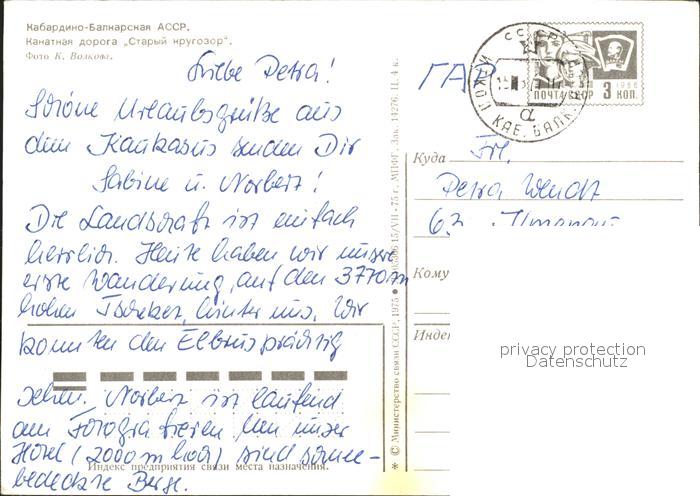 Кабардино-Балкарская АССР.
Канатная дорога „Старый кругозор“.
Фото К. Волкова.
Liebe Petra!
Schöne Urlaubsgrüße aus
dem Kaukasus senden Dir
Sabine u. Norbert!
Die Landschaft ist einfach
herrlich. Heute haben wir unsere
erste Wanderung, auf den 3770 m
hohen Tscheket, hinter uns. Wir
konnten den Elbrus prächtig
sehen. Norbert ist laufend
am Fotografieren. Um unser
Hotel (2000 m hoch) sind schnee-
bedeckte Berge.
Индекс предприятия связи места назначения.
* © Министерство связи СССР, 1975 15/VII-75 г. МПФГ. Зак. 14276. Ц. 4 к.
ГДР
ПОЧТА СССР 3 КОП.
1966
СССР
КАБ. БАЛК.
α
Куда
Frl.
Petra Wendt
63 Ilmenau
Кому
Индекс
privacy protection
Datenschutz